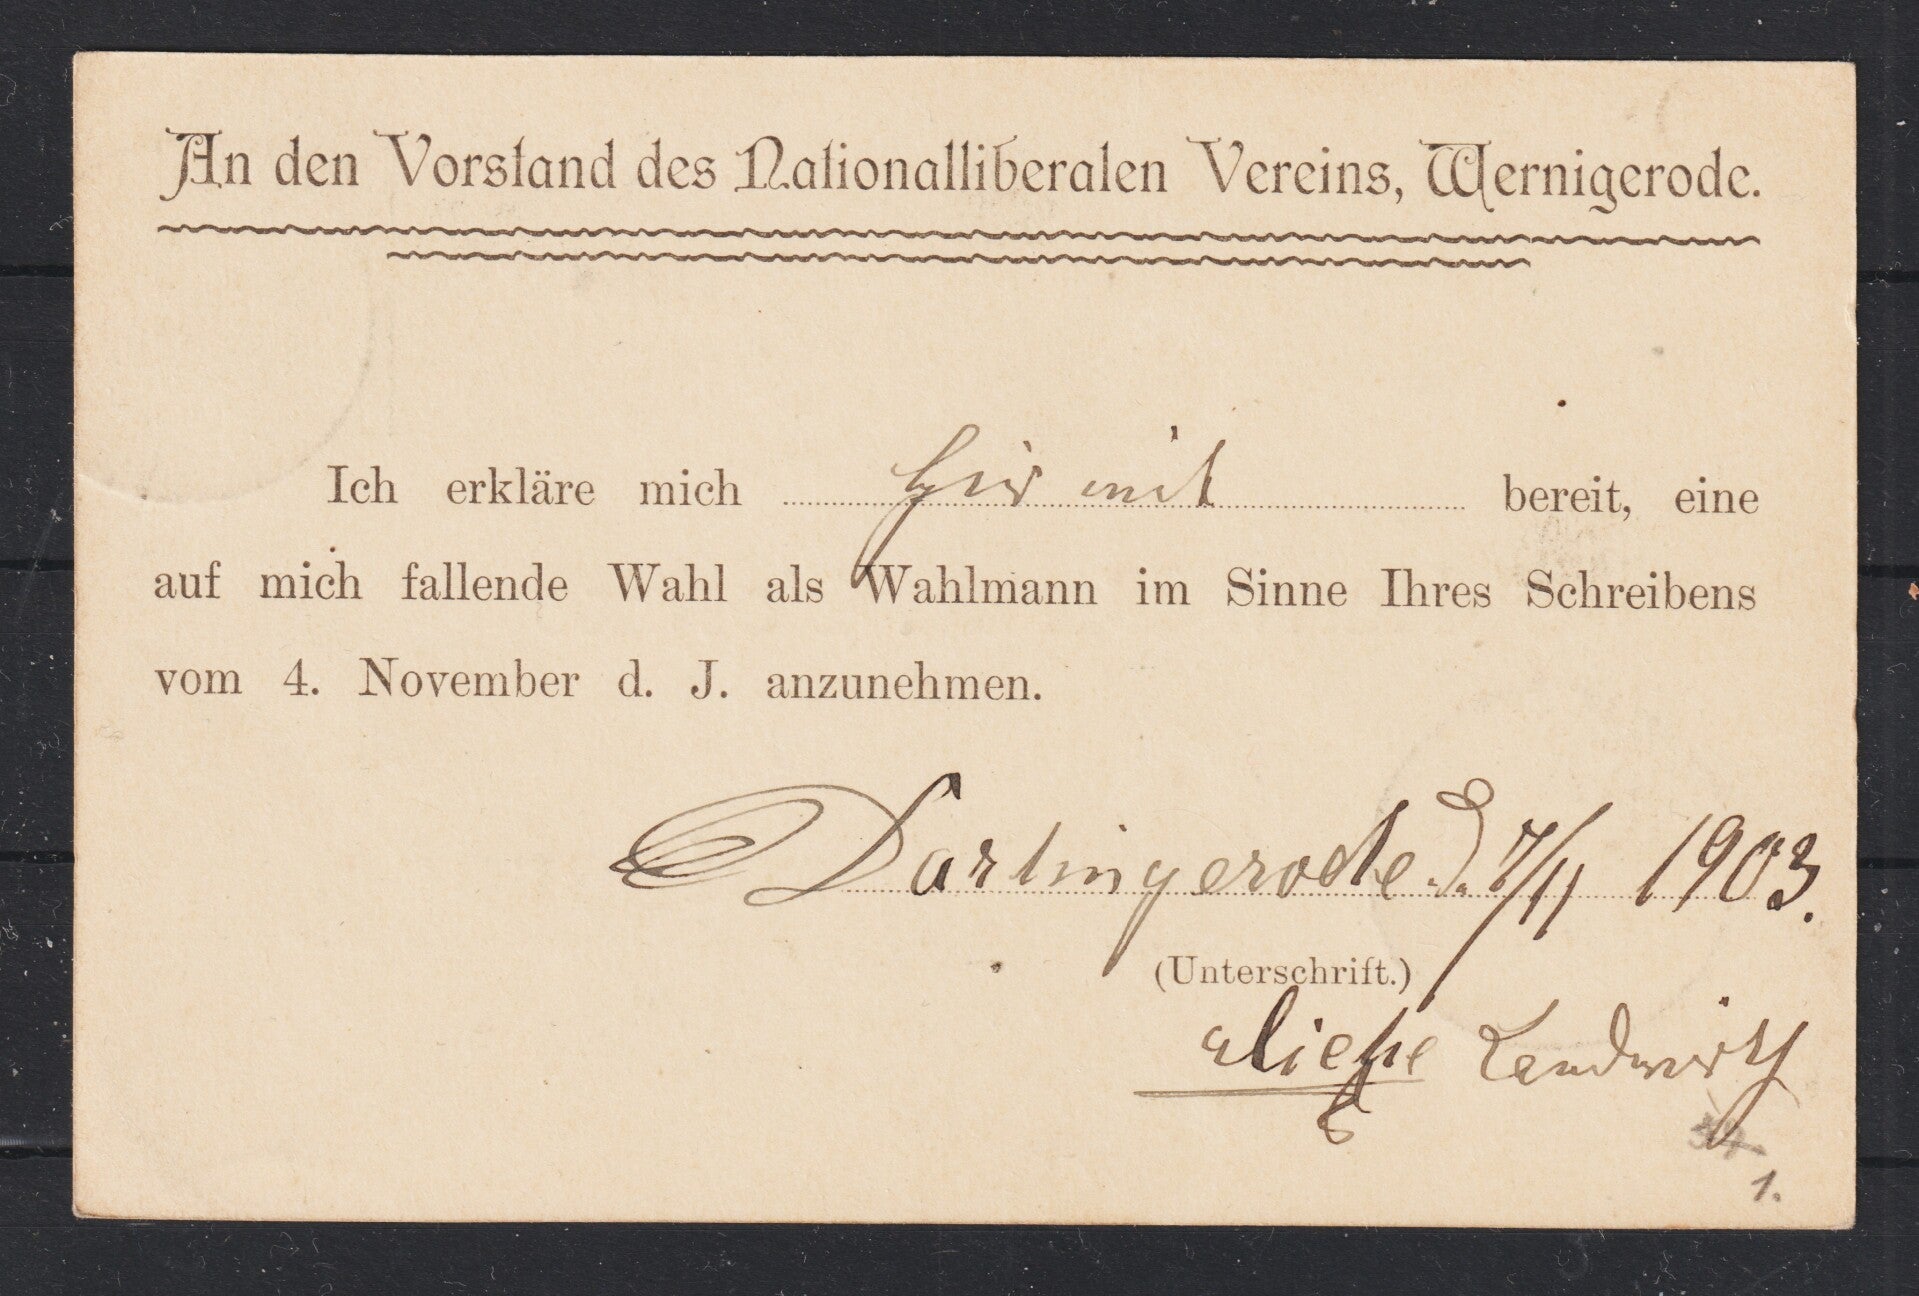 An den Vorstand des Nationalliberalen Vereins, Wernigerode.
Ich erkläre mich hier mit bereit, eine
auf mich fallende Wahl als Wahlmann im Sinne Ihres Schreibens
vom 4. November d. J. anzunehmen.
Darlingerode d. 7/11 1903.
(Unterschrift.)
Landwirth
1.